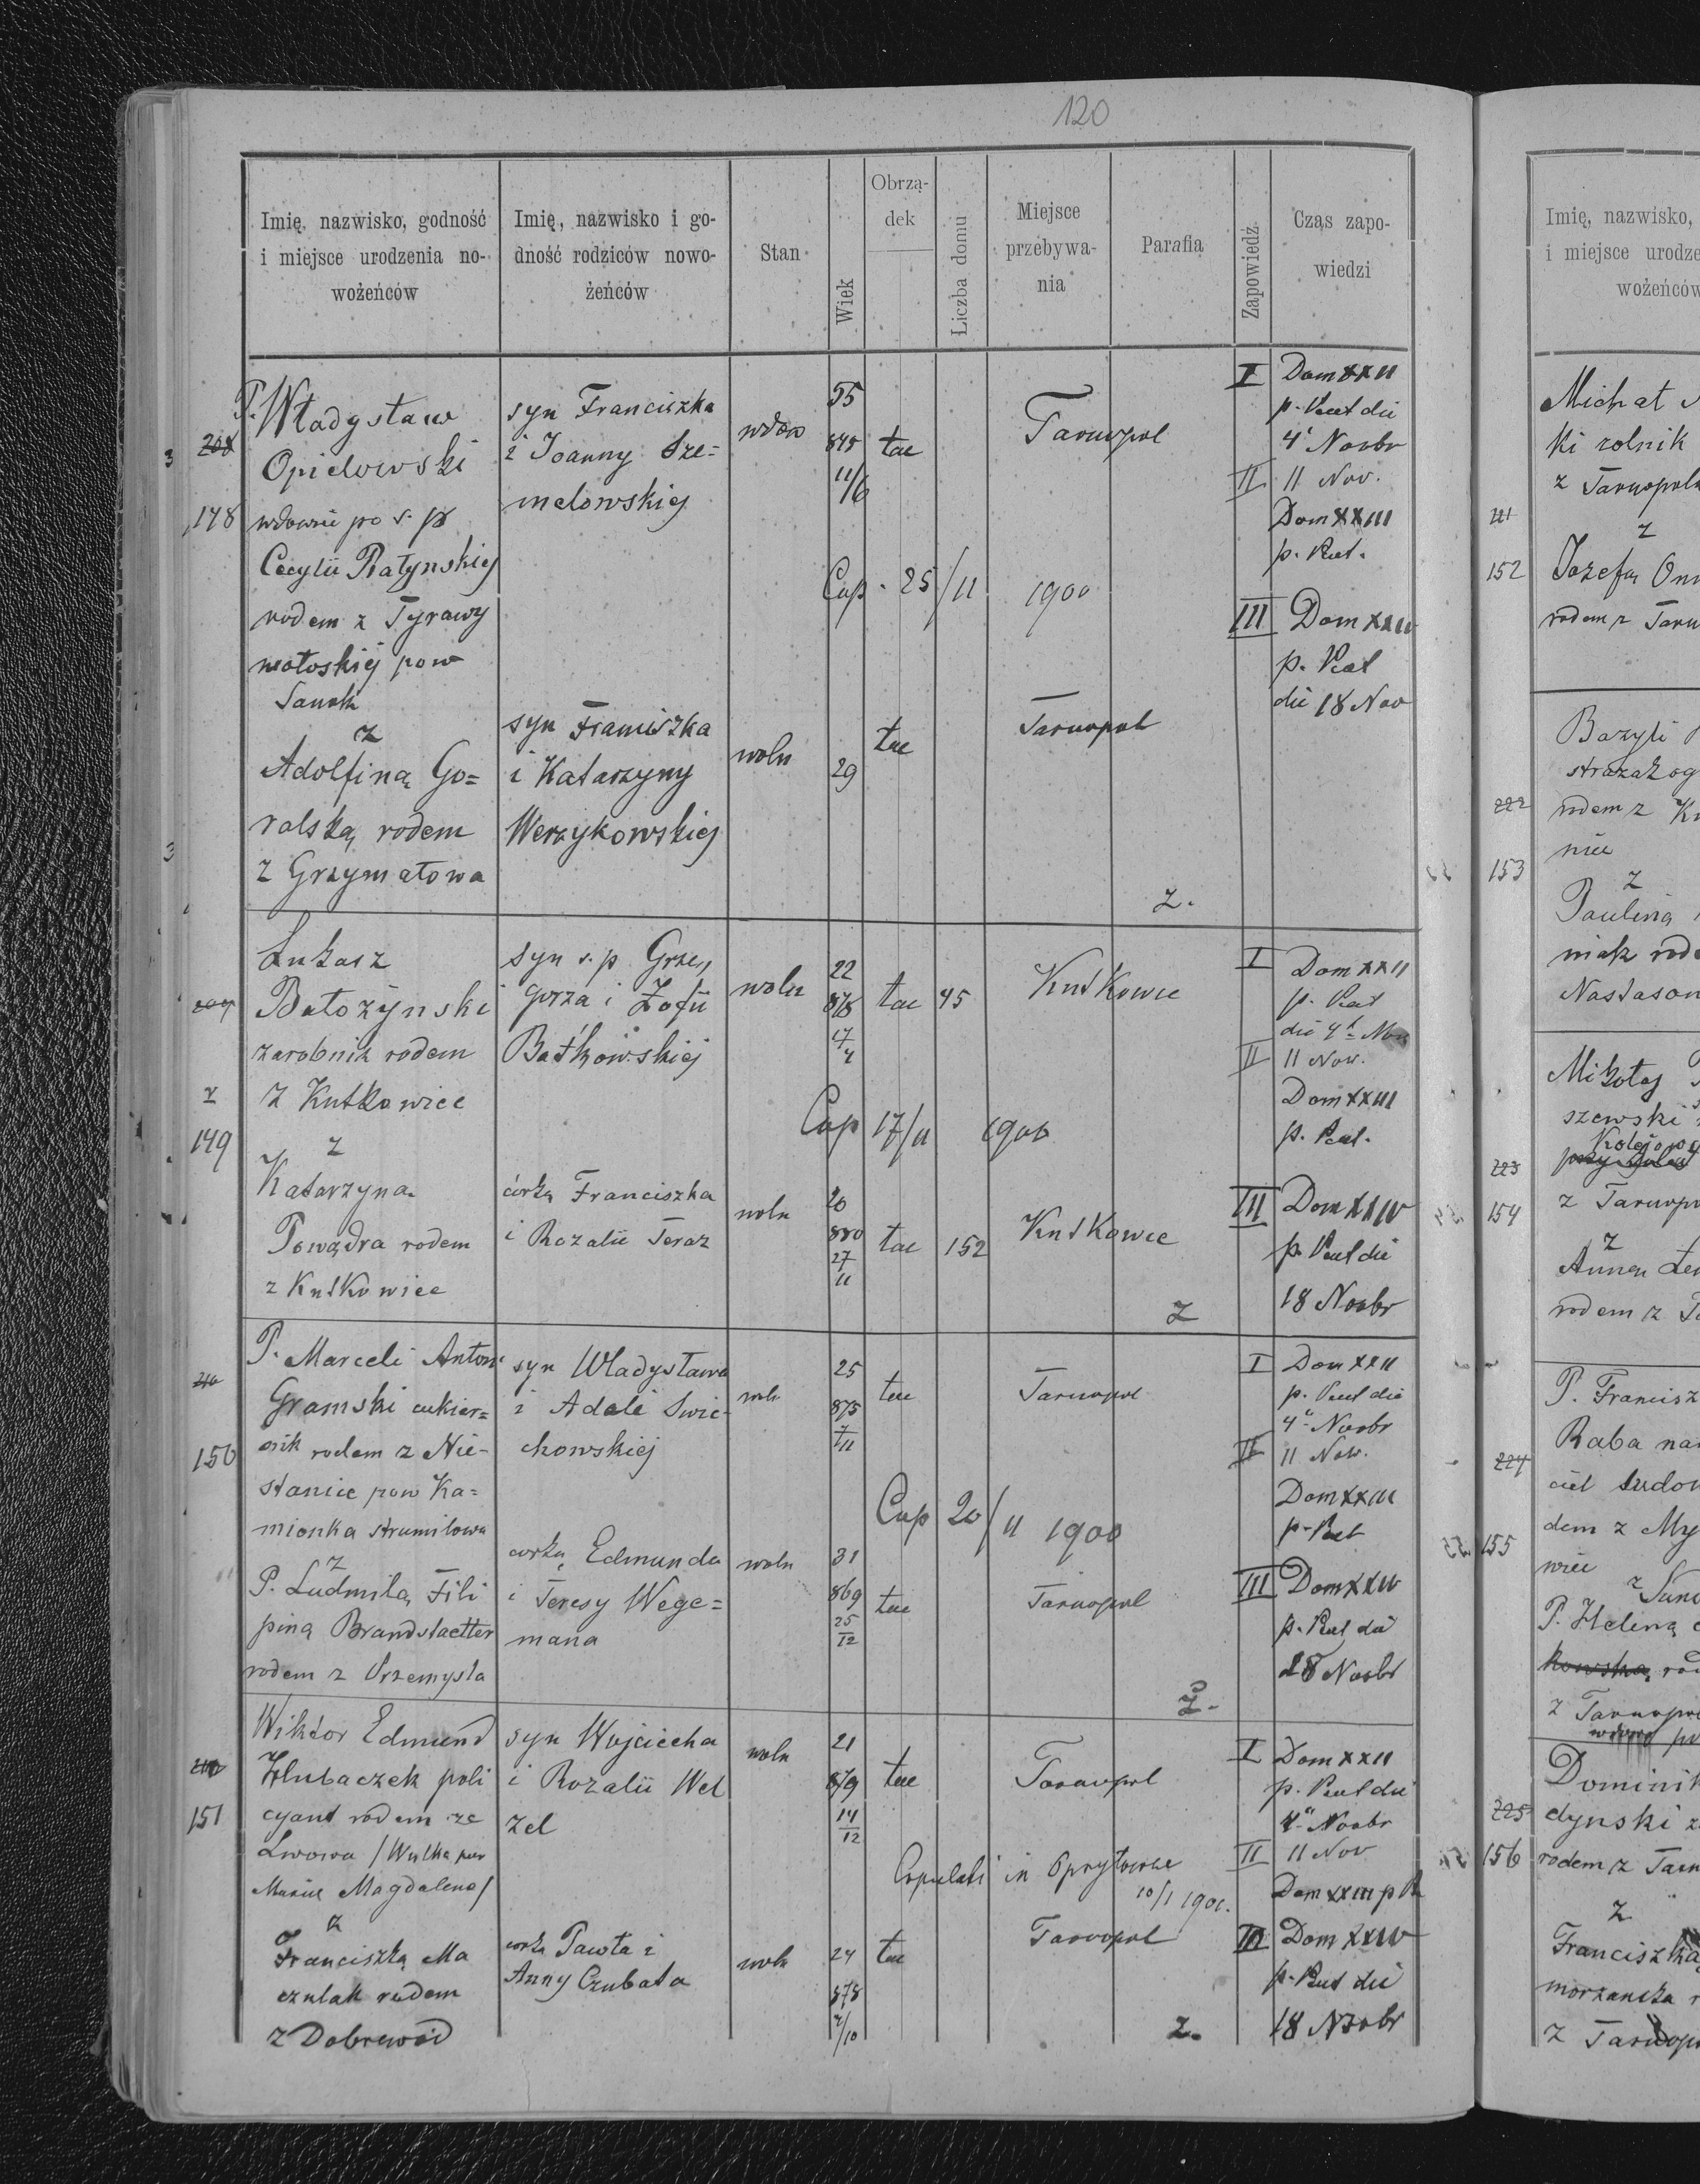 120
Imię, nazwisko, godność
i miejsce urodzenia no-
wożeńców
Imię, nazwisko i go-
dność rodziców nowo-
żeńców
Stan
Wiek
Obrzą-
dek
Liczba domu
Miejsce
przebywa-
nia
Parafia
Zapowiedź.
Cząs zapo-
wiedzi
208
148
P. Władysław
Opielowski
wdowiec po ś. p
Cecylii Ratynskiej
rodem z Tyrawy
wołoskiej pow
Sanok
z
Adolfiną Go=
ralską rodem
z Grzymałowa
syn Franciszka
i Joanny Sze=
melowskiej
syn Franciszka
i Katarzyny
Werzykowskiej
wdow
woln
55
845
11/6
29
łac
łac
Tarnopol
Tarnopol
Cop. 25/11 1900
z.
I Dom XXII
p. Pent die
4' Novbr
II 11 Nov.
Dom XXIII
p. Pent.
III Dom XXIV
p. Pent
die 18 Nov
209
149
Łukasz
Batożynski
zarobnik rodem
z Kutkowiec
z
Katarzyna
Powądra rodem
z Kutkowiec
syn ś. p Grze,
gorza i Zofii
Bałkowskiej
córką Franciszka
i Rozalii Teraz
woln
woln
22
878
17
4
20
880
27
11
łac 45
łac 152
Kutkowce
Kutkowce
Cop 17/11 1900
z
I Dom XXII
p. Pent
die 4' Nov
II 11 Nov.
Dom XXIII
p. Pent.
III Dom XXIV
p. Pent die
18 Novbr
210
150
P. Marceli Antoni
Gramski cukier=
nik rodem z Nie-
stanice pow Ka=
mionka strumilowa
z
P. Ludmilą Fili
piną Brandstaetter
rodem z Przemysla
syn Władysława
i Adeli Swie-
chowskiej
corką Edmunda
i Teresy Wege=
mana
woln
woln
25
875
7
11
31
869
25
12
łac
łac
Tarnopol
Tarnopol
Cop 20/11 1900
z.
I Dom XXII
p. Pent die
4' Novbr
II 11 Nov.
Dom XXIII
p. Pent
III Dom XXIV
p. Pent die
18 Novbr
151
Wiktor Edmund
Hlubaczek poli
cyant rodem ze
Lwowa / Wulka par
Maria Magdalena /
z
Franciszką Ma
czulak rodem
z Dobrewód
syn Wojciecha
i Rozalii Wet
zel
corką Pawła i
Anny Czubata
woln
woln
21
879
14
12
24
878
łac
łac
Tarnopol
Tarnopol
Copulati in
10/1 1901.
z.
I Dom XXII
p. Pent die
4' Novbr
II 11 Nov
Dom XXIII p P
III Dom XXIV
p. Pent die
18 Novbr
Imię, nazwisko,
i miejsce urodze
wożeńców
152
Michał
ki rolnik
z Tarnopola
z
Józefą
rodem z Tarn
222
153
Bazyli
strażak og
rodem z
z
Pauliną
niak rod
Nastason
223
154
Mikołaj
szewski
z Tarnopo
z
Annen
rodem z T
224
155
P. Francisz
Raba nau
ciel ludow
dem z My
wiec
z
P. Heleną
z Tarnopol
225
156
Dominik
dynski z
rodem z Tarn
z
Franciszką
morzańska
z Tarnop